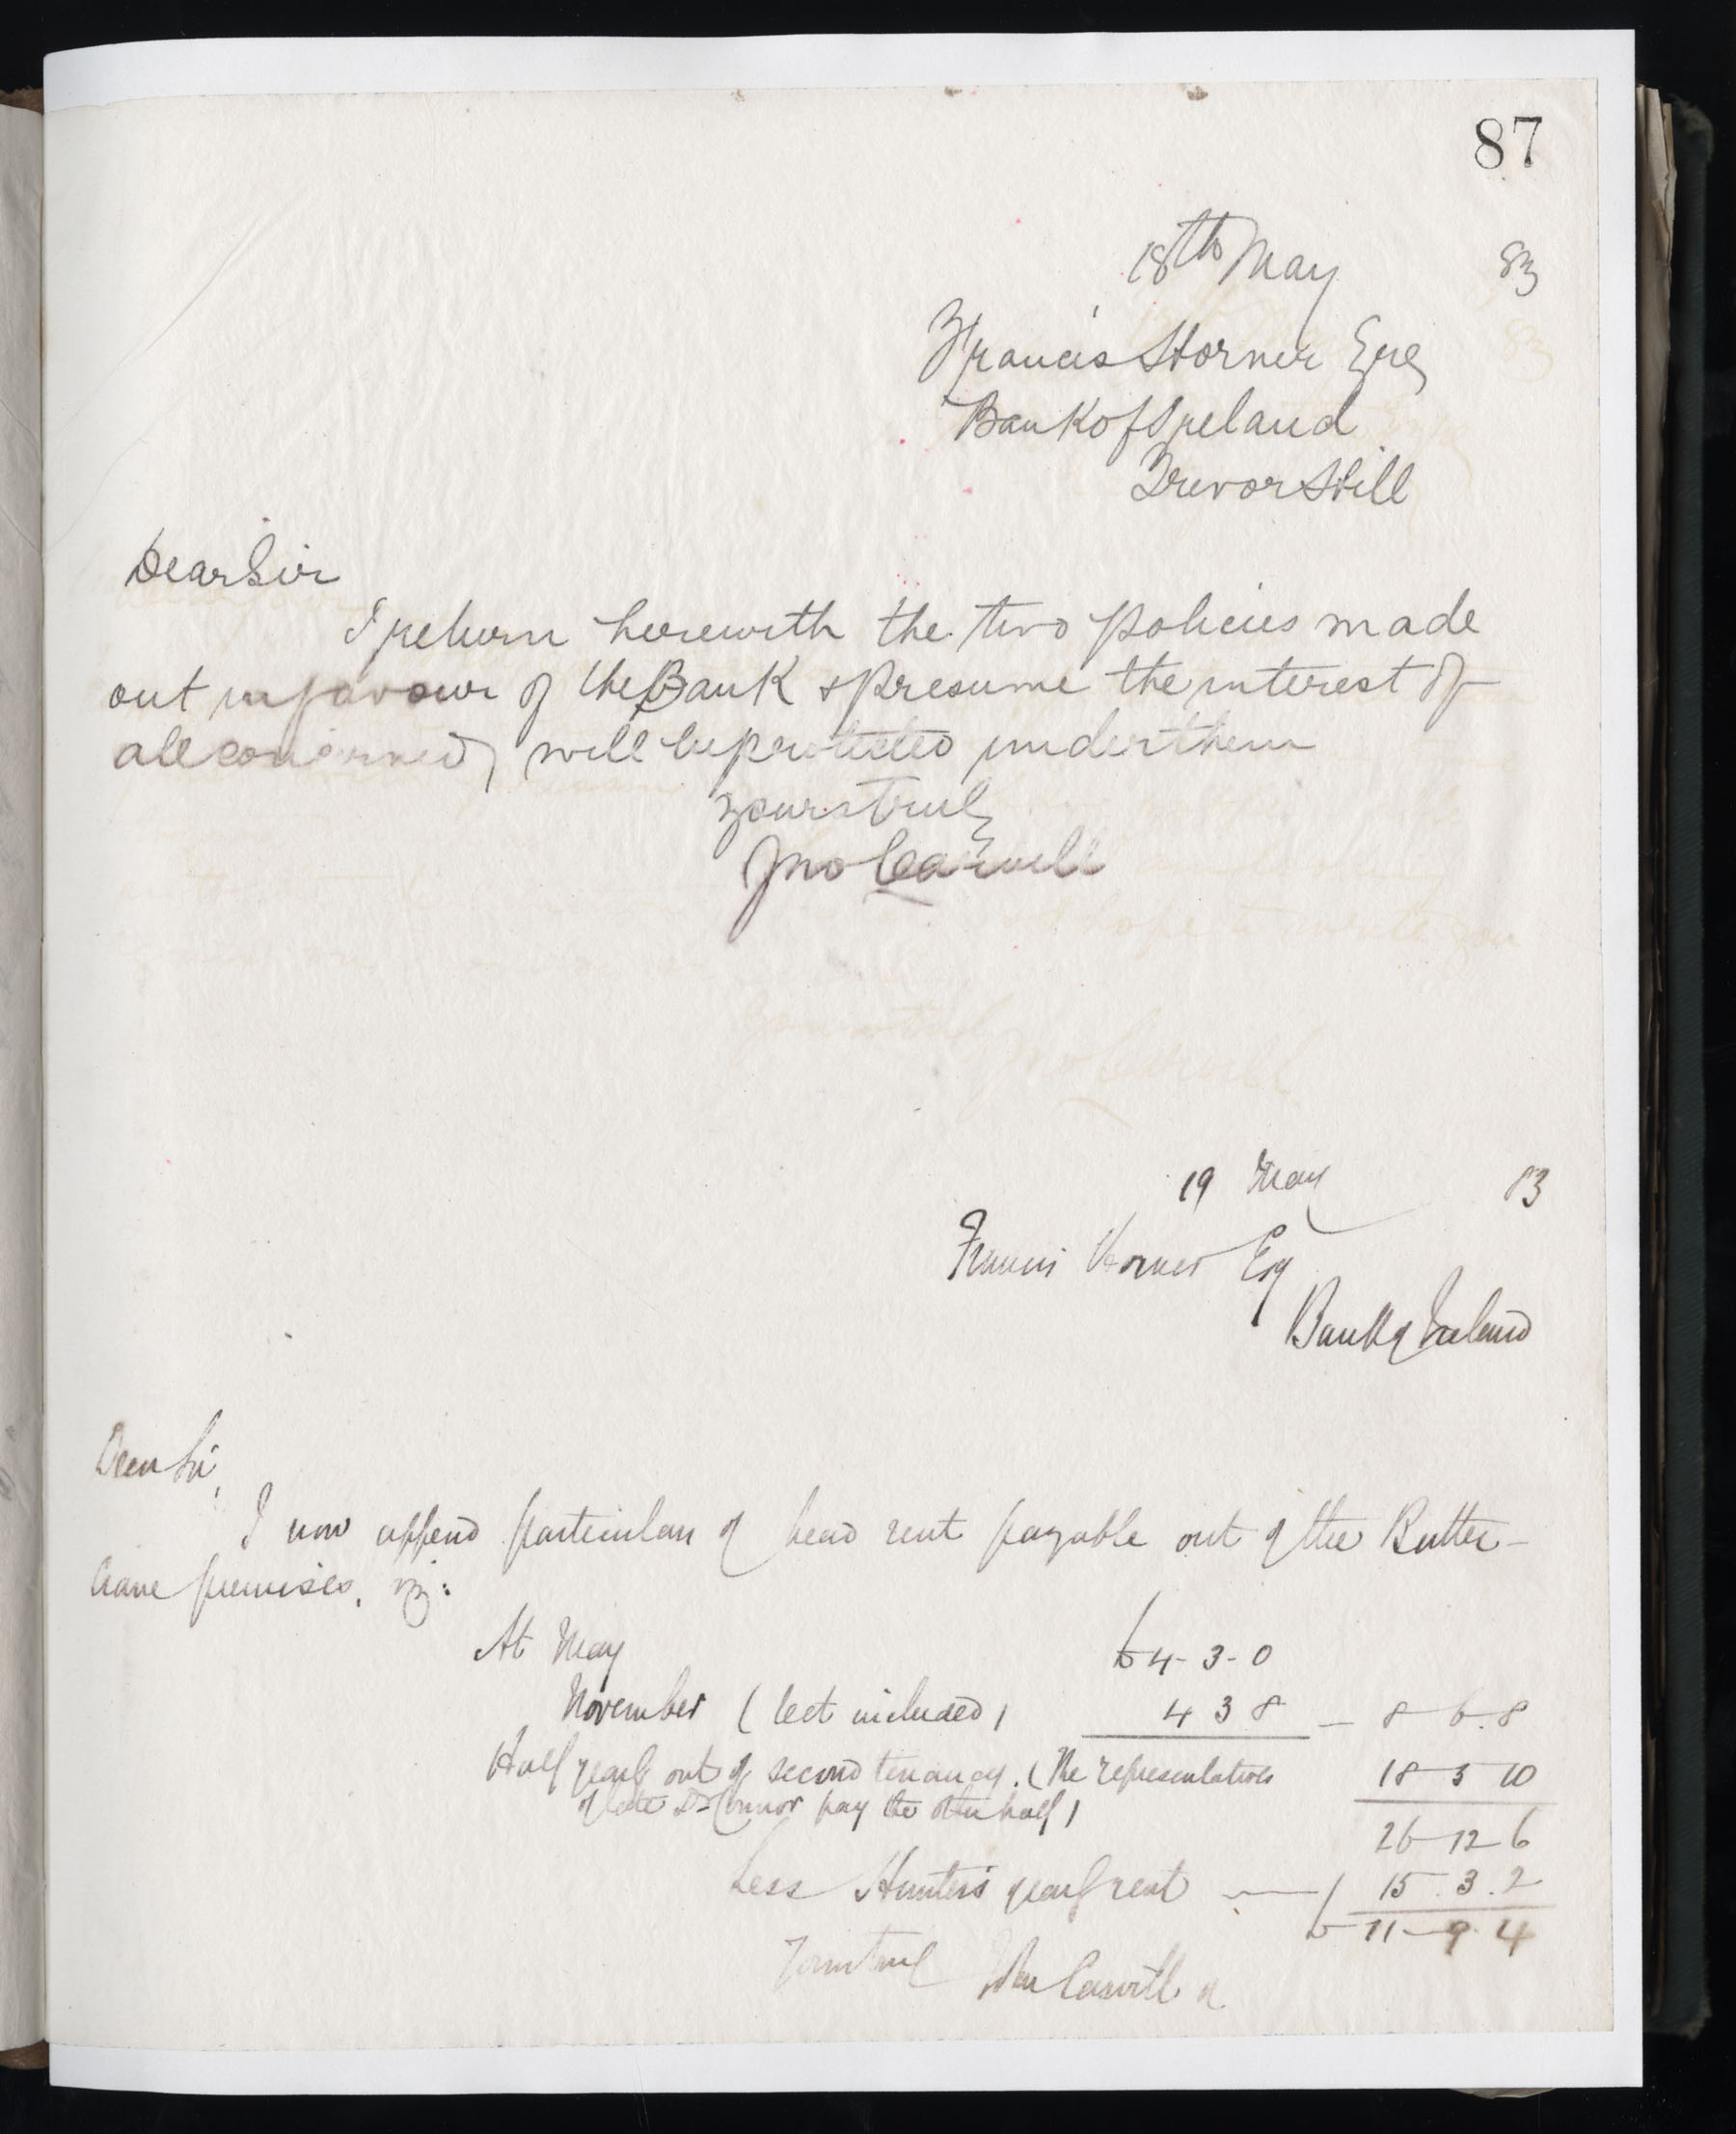 87
18th May 83
Francis Horner Esq
Bank of Ireland
Trevor Hill
Dear Sir
I return herewith the two policies made
out in favour of the Bank & presume the interest of
all concerned, will be protected under them
Yours truly
Jno Carvill
19 May 83
Francis Horner Esq
Bank of Ireland
Dear Sir,
I now append particulars of head rent payable out of the Butter-
Crane premises, viz:
At May £4-3-0
November (lect included) 4 3 8 — 8 - 6. 8
Half yearly out of second tenancy. (The representatives 18 5 10
of late Dr Connor pay the other half) 26-12-6
Less Hunter's yearly rent — 15. 3. 2
£ 11-9.4
Yours truly Jno Carvill